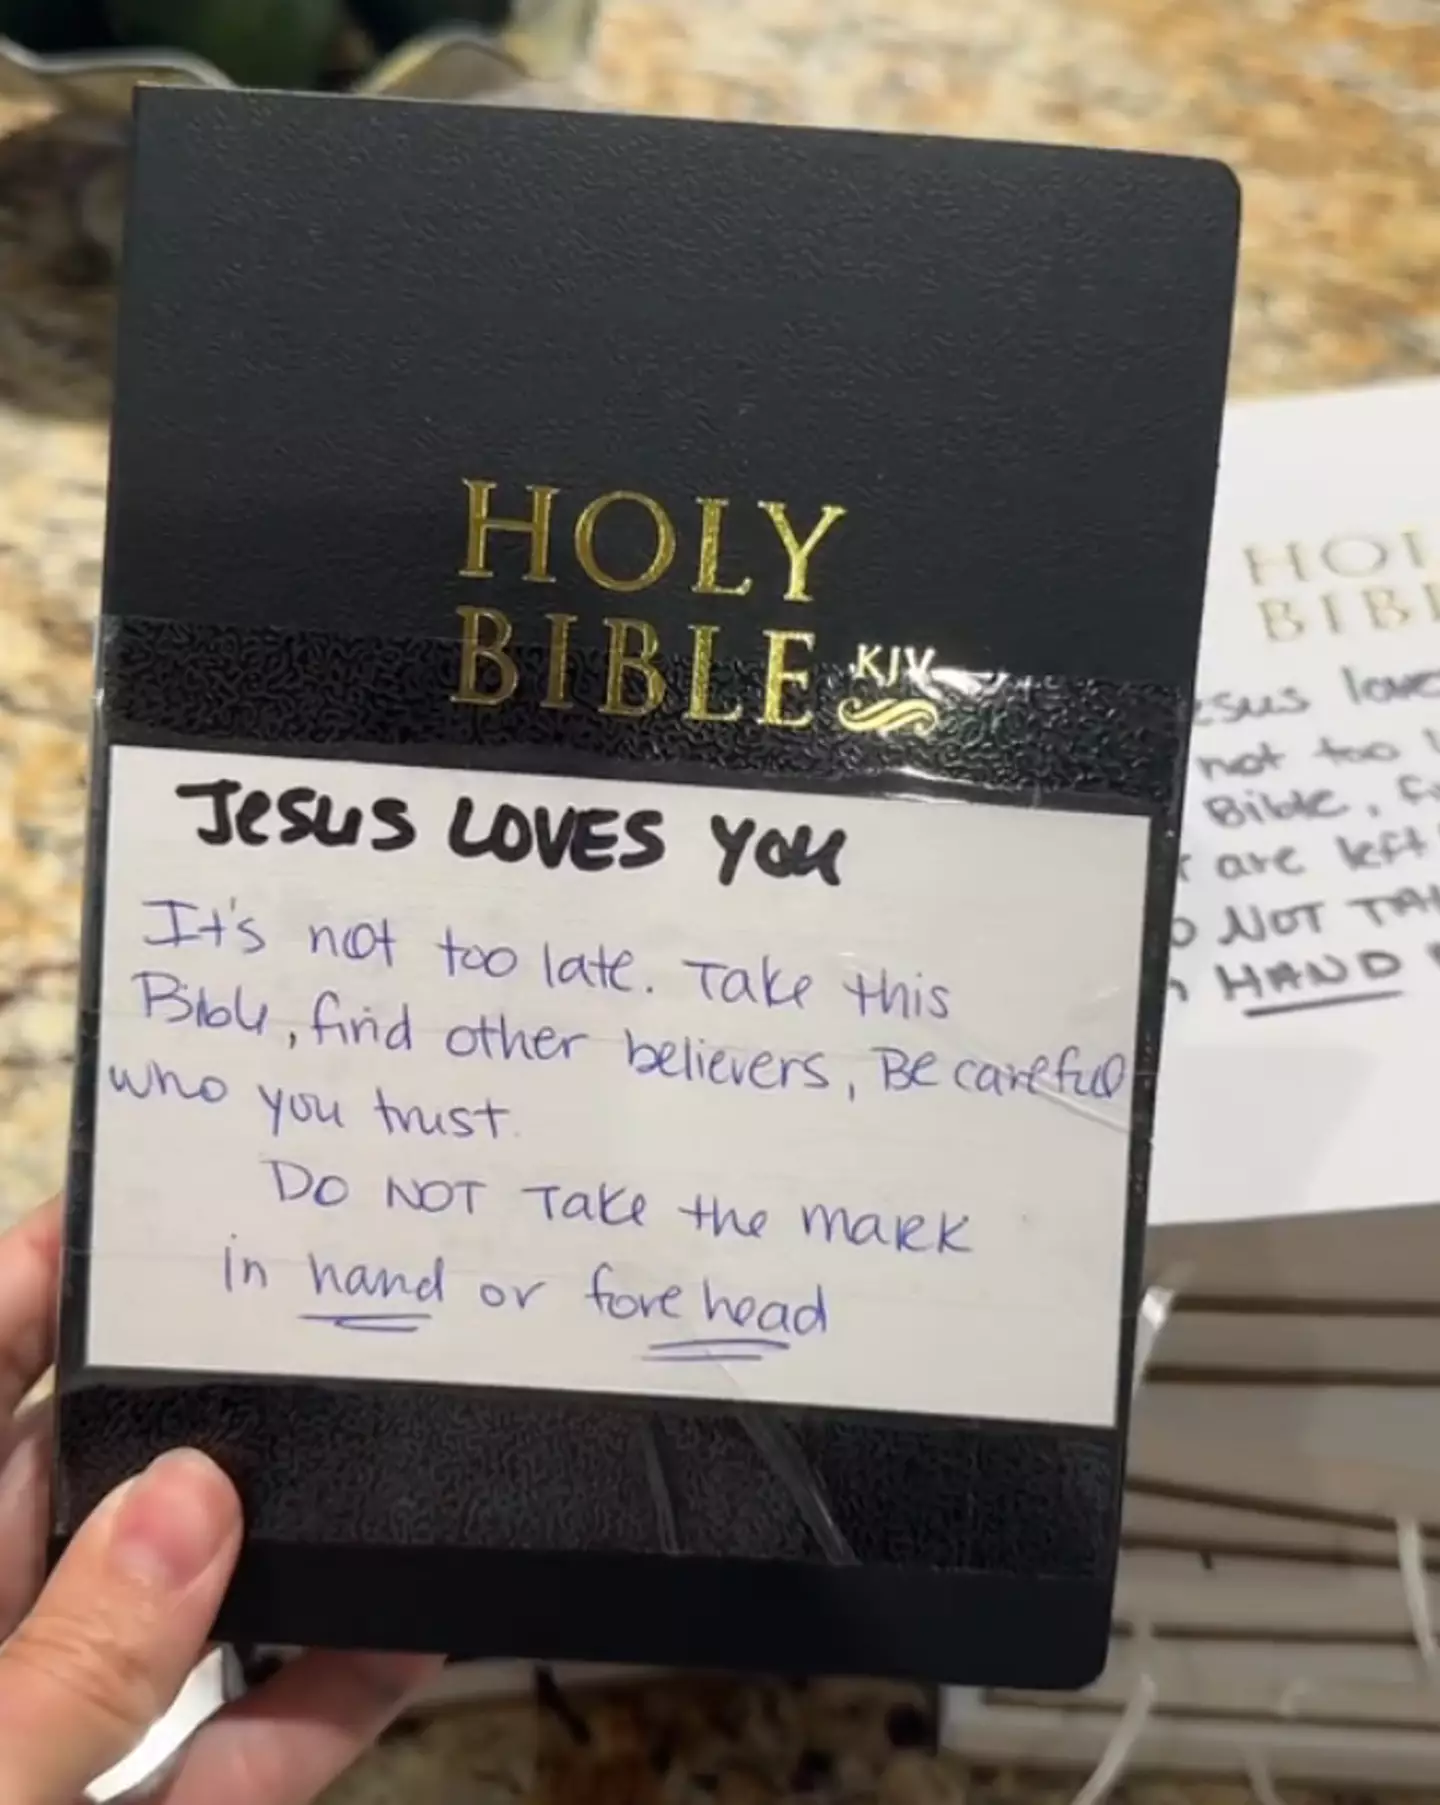 HOLY
BIBLE KJV
JESUS LOVES YOU
It's not too late. Take this
Bible, find other believers, Be careful
who you trust.
DO NOT TAKE the MARK
in hand or fore head
HOL
BIBL
esus love
not too l
Bible, fi
are left
NOT TA
HAND